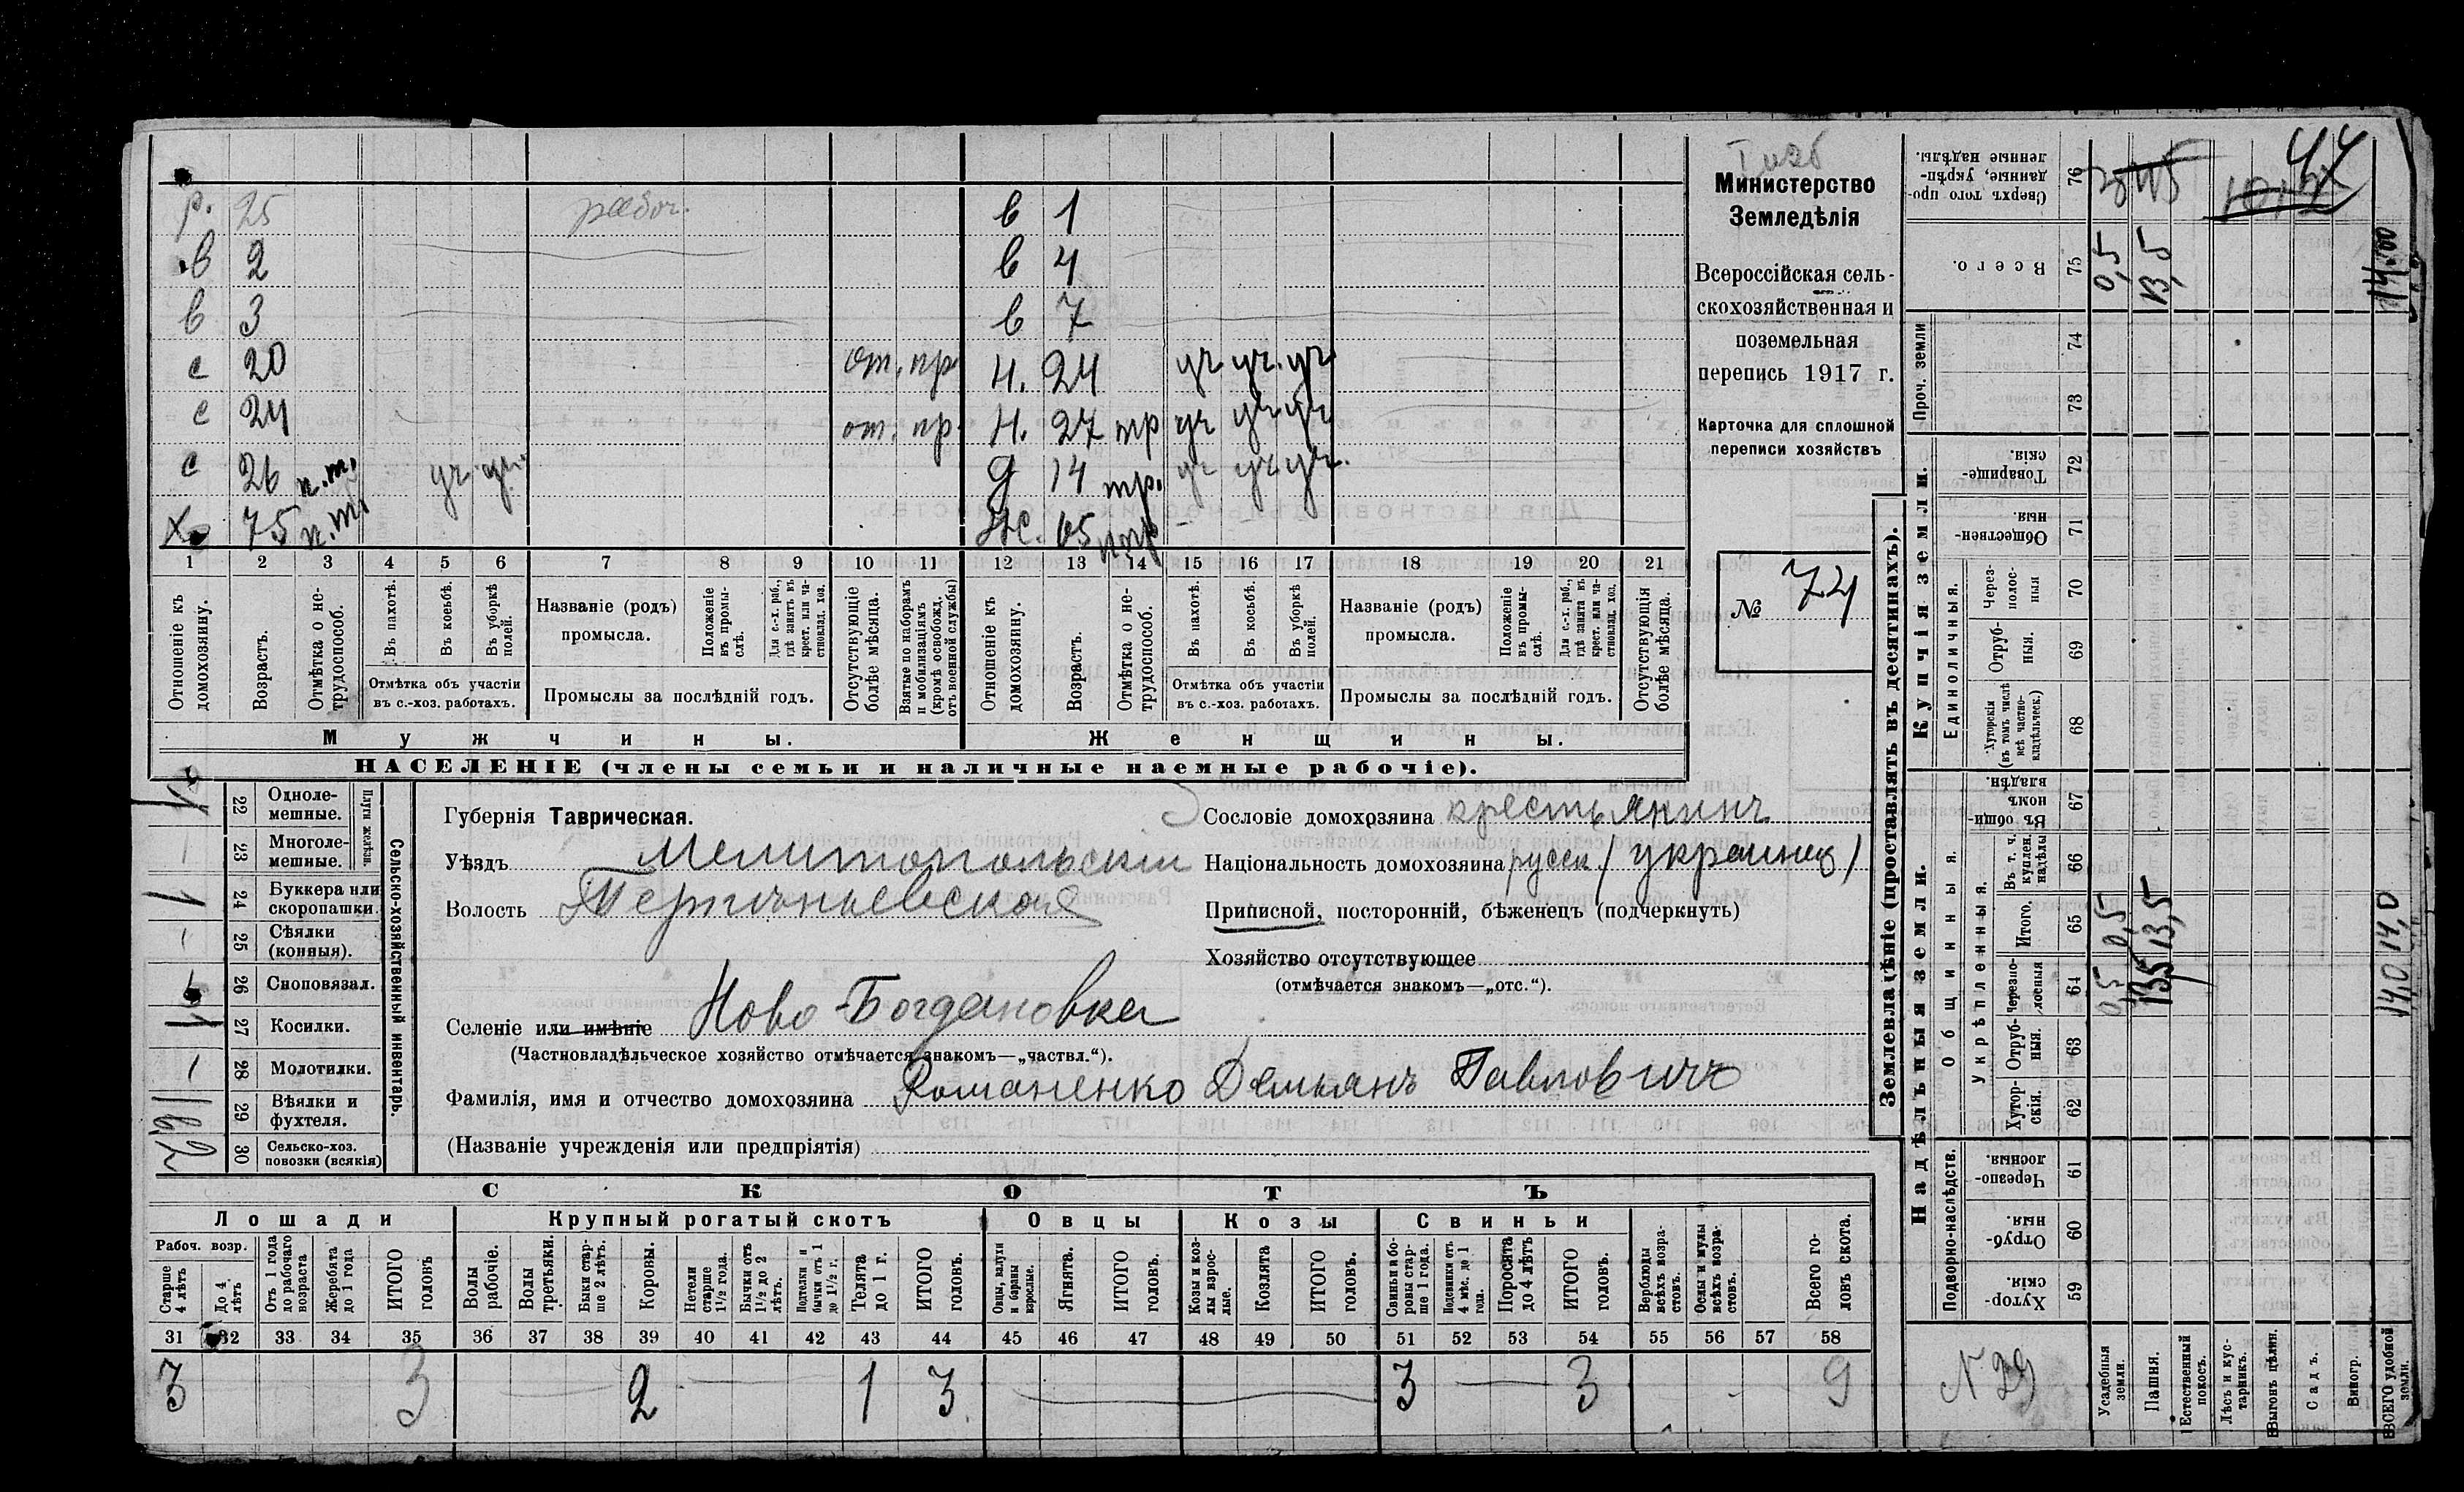 Министерство
Земледѣлія
Всероссійская сель-
скохозяйственная и
поземельная
перепись 1917 г.
Карточка для сплошной
переписи хозяйствъ
№ 74
р. 25 рабоч.
в 2
в 3
с 20 от. пр.
с 24 от. пр.
с 26 п.т. уч. уч.
х. 75 п.т.
в 1
в 4
в 7
н. 24 уч уч. уч
н. 27 пр уч уч уч
д 14 пр. уч уч уч.
ж. 65
1 2 3 4 5 6 7 8 9 10 11 12 13 14 15 16 17 18 19 20 21
Отношеніе къ домохозяину.
Возрастъ.
Отмѣтка о не-трудоспособ.
Въ пахотѣ.
Въ косьбѣ.
Въ уборкѣ полей.
Отмѣтка объ участіи
въ с.-хоз. работахъ.
Названіе (родъ)
промысла.
Положеніе въ промы-слѣ.
Для с.-х. раб., гдѣ занятъ въ крест. или ча-стновлад. хоз.
Промыслы за послѣдній годъ.
Отсутствующіе болѣе мѣсяца.
Взятые по наборамъ и мобилизаціямъ (кромѣ освобожд. отъ военной службы)
Отношеніе къ домохозяину.
Возрастъ.
Отмѣтка о не-трудоспособ.
Въ пахотѣ.
Въ косьбѣ.
Въ уборкѣ полей.
Отмѣтка объ участіи
въ с.-хоз. работахъ.
Названіе (родъ)
промысла.
Положеніе въ промы-слѣ.
Для с.-х. раб., гдѣ занята въ крест. или ча-стновлад. хоз.
Промыслы за послѣдній годъ.
Отсутствующія болѣе мѣсяца.
Мужчины.
Женщины.
НАСЕЛЕНІЕ (члены семьи и наличные наемные рабочіе).
Сельско-хозяйственный инвентарь.
Плуги желѣзн.
22 Одноле-мешные. 1
23 Многоле-мешные.
24 Буккера или скоропашки. 1
25 Сѣялки (конныя).
26 Сноповязал.
27 Косилки. 1
28 Молотилки.
29 Вѣялки и фухтеля. 1
30 Сельско-хоз. повозки (всякія)
Губернія Таврическая.
Уѣздъ Мелитопольскій
Волость
Селеніе или имѣніе Ново-Богдановка
(Частновладѣльческое хозяйство отмѣчается знакомъ—„частвл.“).
Фамилія, имя и отчество домохозяина Романенко Демьянъ Павловичъ
(Названіе учрежденія или предпріятія)
Сословіе домохозяина крестьянинъ
Національность домохозяина русск. (украинец)
Приписной, посторонній, бѣженецъ (подчеркнуть)
Хозяйство отсутствующее
(отмѣчается знакомъ—„отс.“).
СКОТЪ
Лошади
Крупный рогатый скотъ
Овцы
Козы
Свиньи
Рабоч. возр.
Старше 4 лѣтъ
До 4 лѣтъ
Отъ 1 года до рабочаго возраста
Жеребята до 1 года
ИТОГО головъ
Волы рабочіе.
Волы третьяки.
Быки стар-ше 2 лѣтъ.
Коровы.
Нетели старше 1½ года.
Бычки отъ 1½ до 2 лѣтъ.
Подтелки и бычки отъ 1 до 1½ г.
Телята до 1 г.
ИТОГО головъ.
Овцы, валухи и бараны взрослые.
Ягнята.
ИТОГО головъ.
Козы и коз-лы взрос-лые.
Козлята
ИТОГО головъ.
Свиньи и бо-ровы стар-ше 1 года.
Подсвинки отъ 4 мѣс. до 1 года.
Поросята до 4 лѣтъ
ИТОГО головъ.
Верблюды всѣхъ возра-стовъ.
Ослы и мулы всѣхъ возра-стовъ.
Всего го-ловъ скота.
31 32 33 34 35 36 37 38 39 40 41 42 43 44 45 46 47 48 49 50 51 52 53 54 55 56 57 58
3 3 2 1 3 3 3 9
Землевладѣніе (проставлять въ десятинахъ).
Надѣльныя земли.
Купчія земли.
Проч. земли
Подворно-наслѣдств.
Общинныя.
Укрѣпленныя.
Единоличныя.
Сверхъ того про-данные, укрѣп-ленные надѣлы. 76
Всего. 75 0,5 13,5
74
73
Товарище-скія. 72
Обществен-ныя. 71
Через-полос-ныя 70
Отруб-ныя. 69
Хуторскія (въ томъ числѣ всѣ частно-владѣльческ.) 68
Въ общи-номъ владѣн. 67
Въ т. ч. куплен. надѣлы 66
Итого, 65 0,5 13,5 14,0
Черезпо-лосныя 64 0,5 13,5 14,0
Отруб-ныя. 63
Хутор-скія. 62
Черезпо-лосныя. 61
Отруб-ныя. 60
Хутор-скія. 59
N 29
Усадебныя земли.
Пашня.
Естественный покосъ.
Лѣсъ и кус-тарникъ.
Выгонъ цѣлин.
Садъ.
Виногр.
ВСЕГО удобной земли.